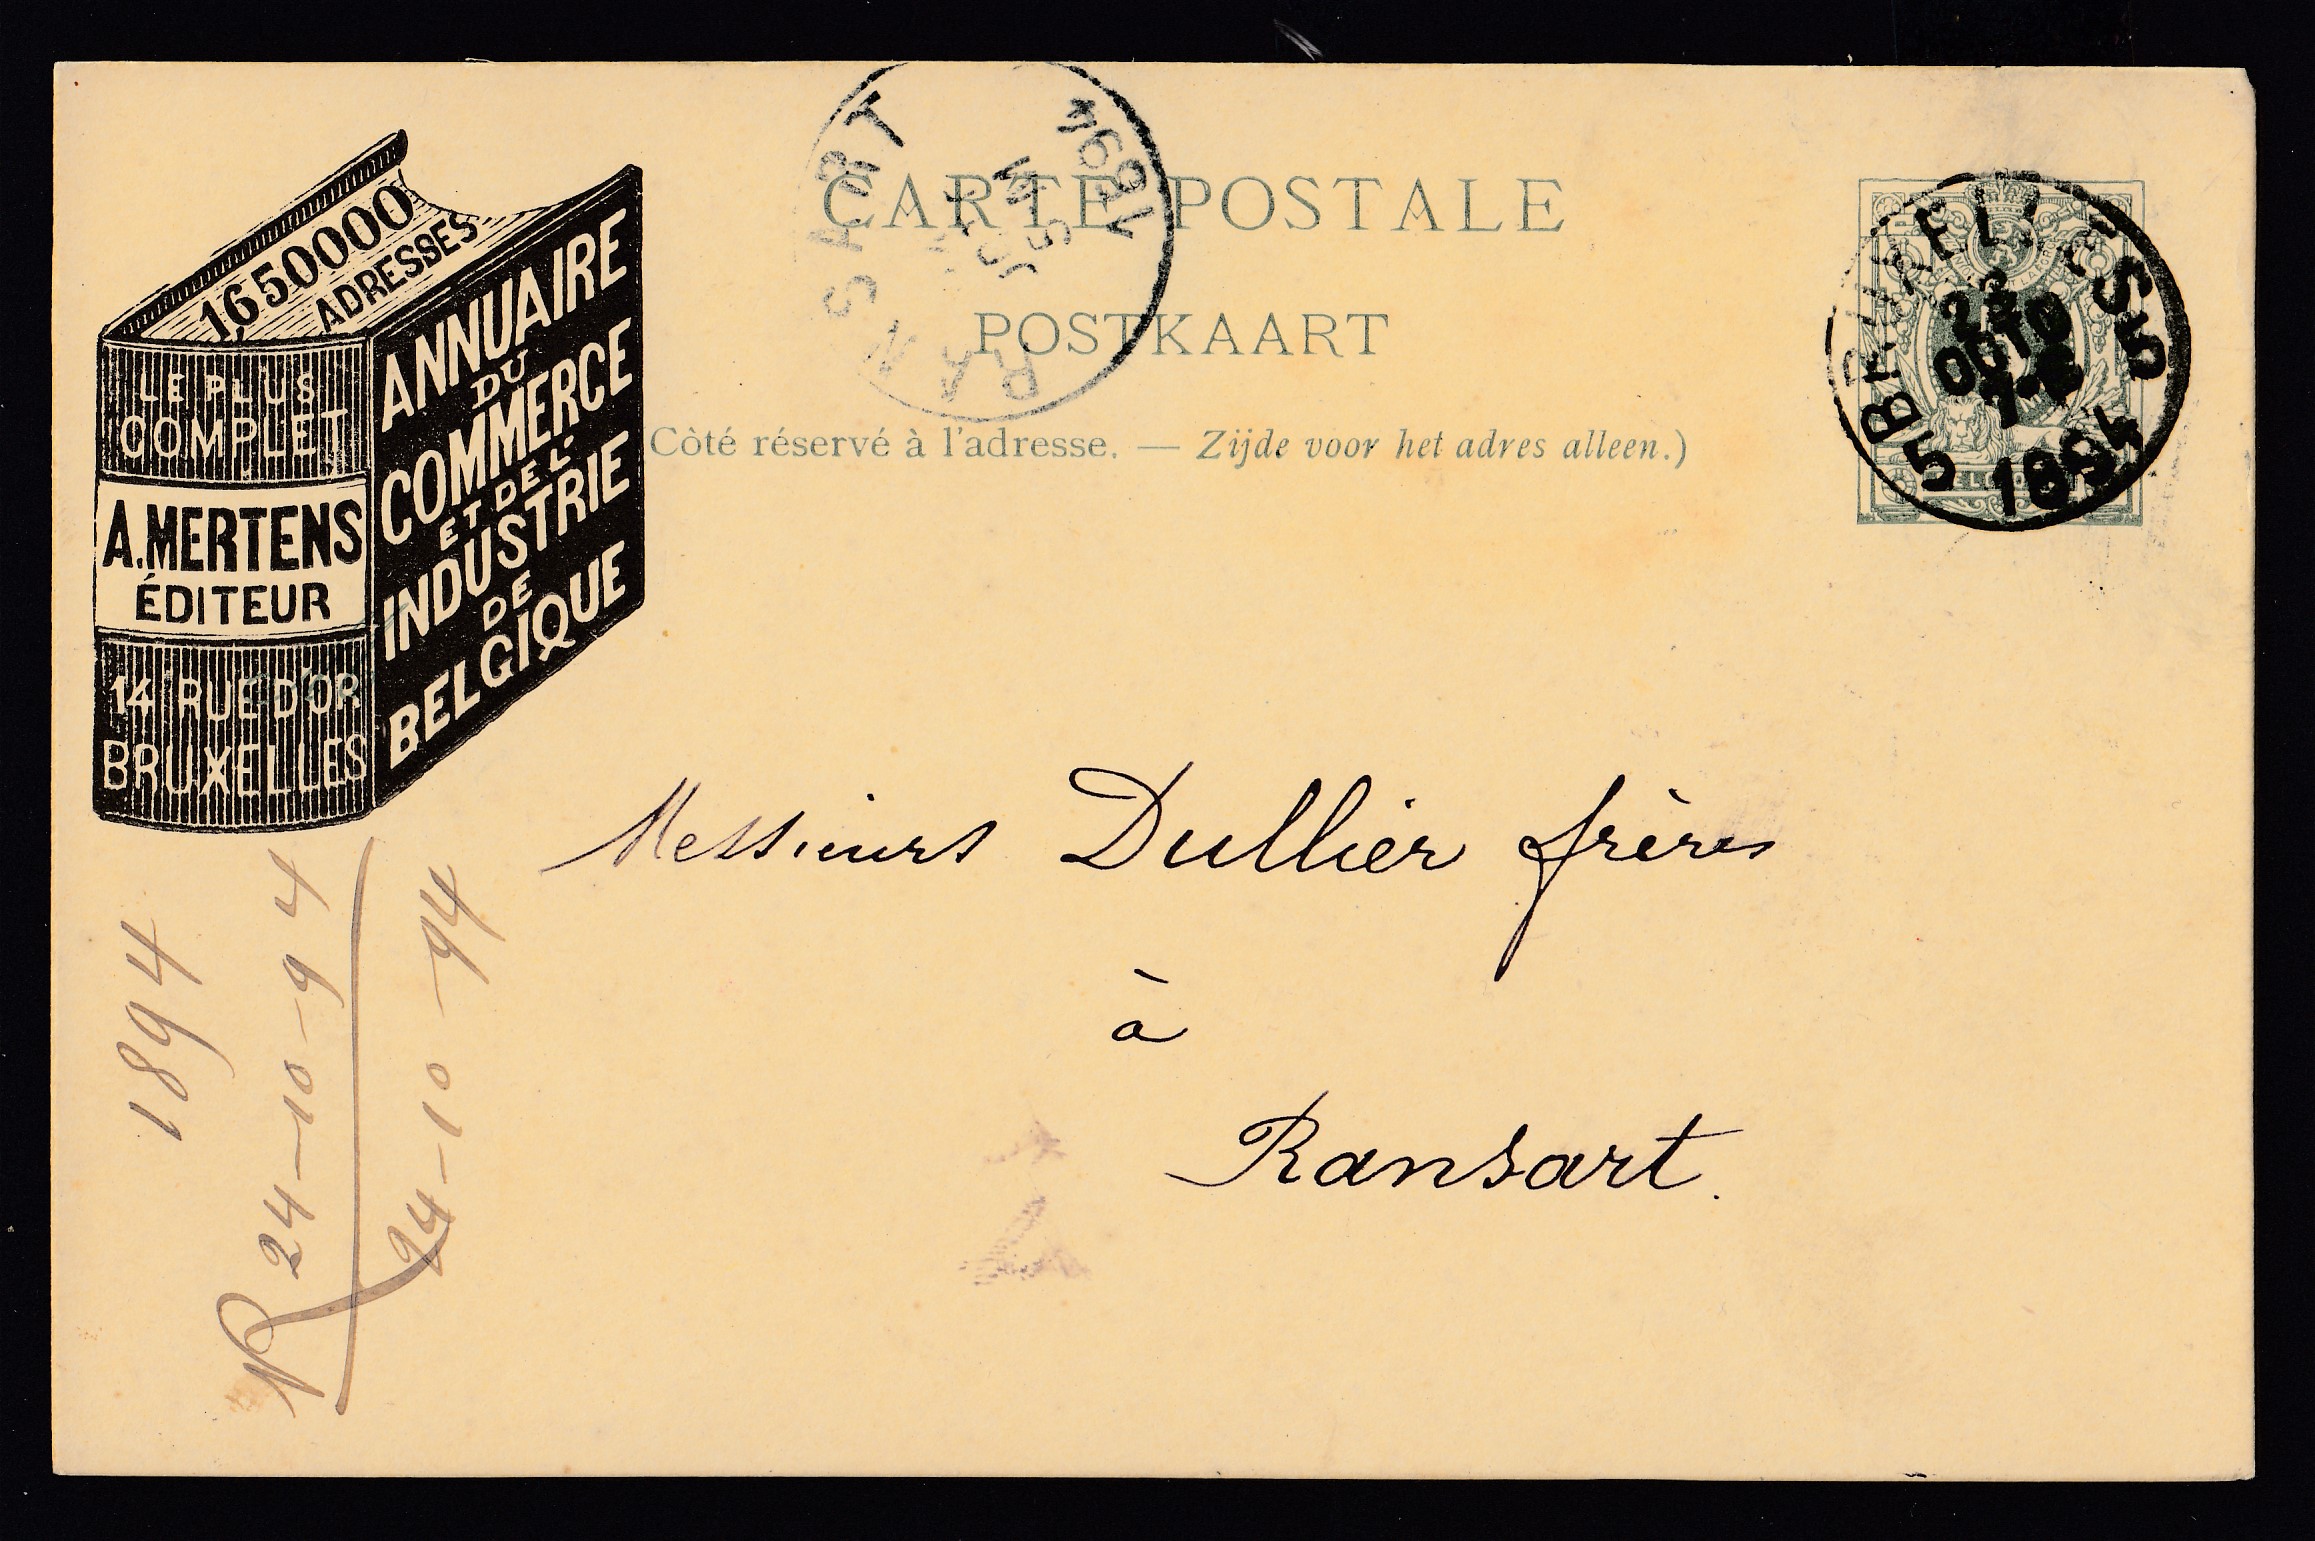 1650000
ADRESSES
LE PLUS
COMPLET
A. MERTENS
ÉDITEUR
14 RUE D'OR
BRUXELLES
ANNUAIRE
DU
COMMERCE
ET DE L'
INDUSTRIE
DE
BELGIQUE
CARTE POSTALE
POSTKAART
Côté réservé à l'adresse. — Zijde voor het adres alleen.)
RANSART
1894
5 BRUXELLES 5
23
OCTO
1894
Messieurs Dullier frères
à
Ransart.
1894
24-10-94
R
24-10 94